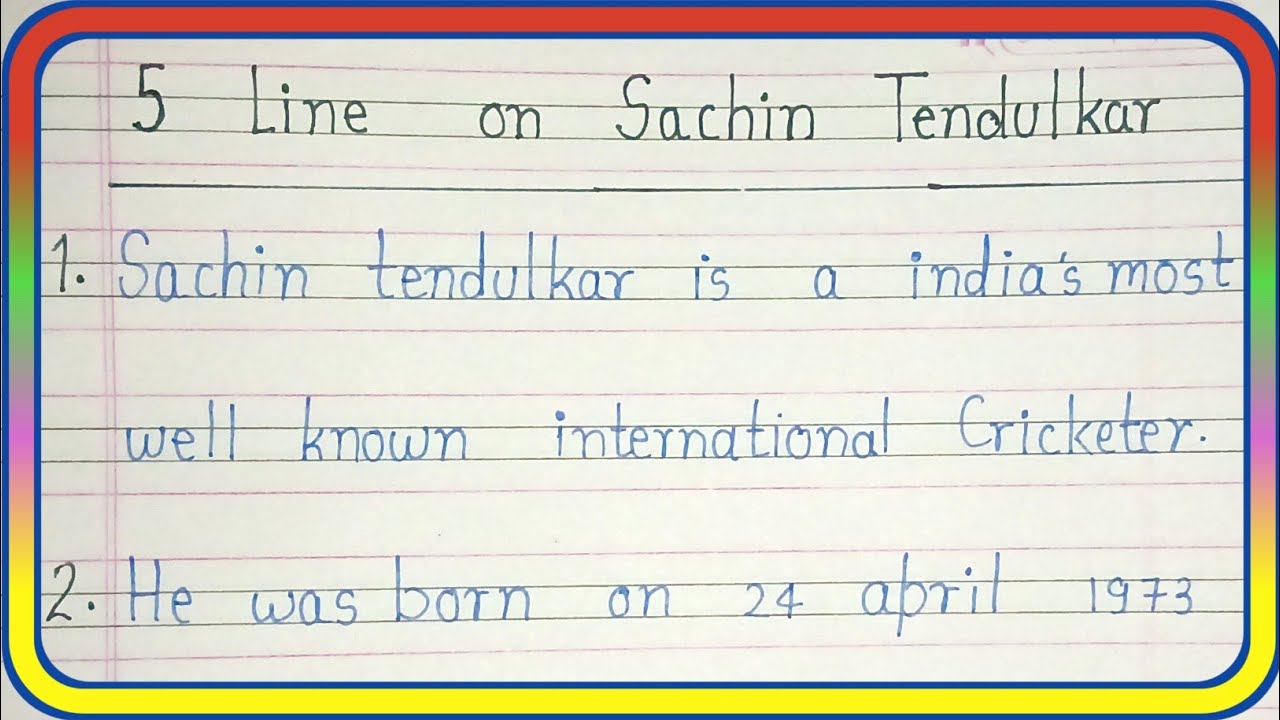 5 Line on Sachin Tendulkar
1. Sachin tendulkar is a india's most
well known international Cricketer.
2. He was born on 24 april 1973